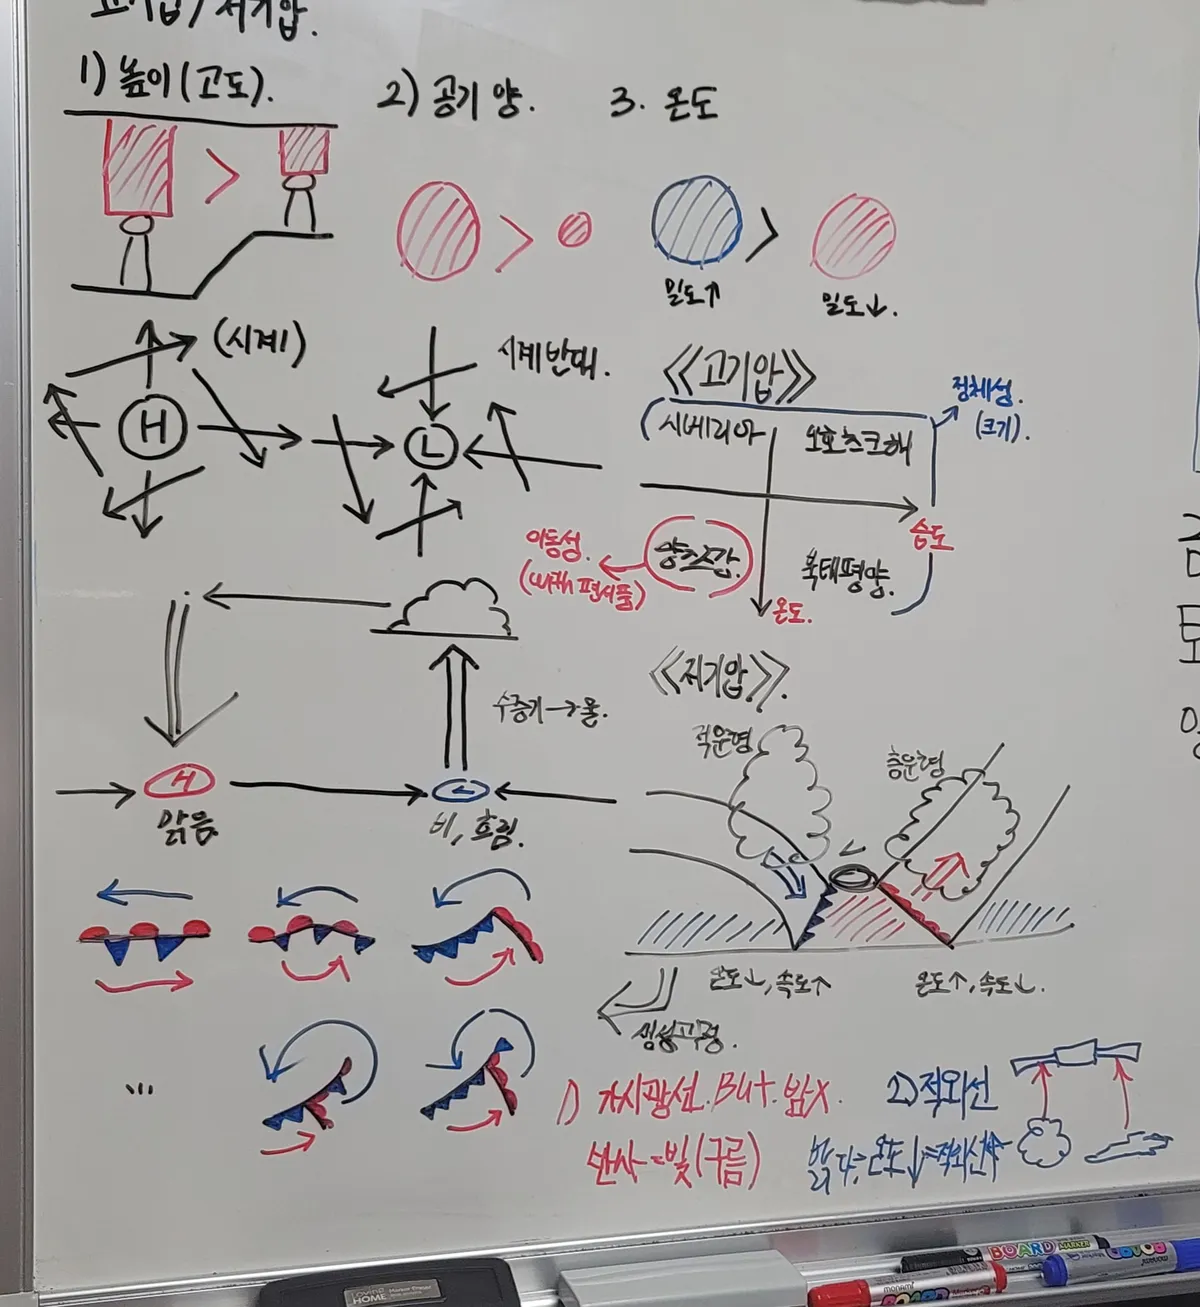 고기압 / 저기압.
1) 높이 (고도).
2) 공기 양.
3. 온도
밀도↑
밀도↓.
(시계)
H
시계 반대.
L
<<고기압>>
정체성.
(크기).
시베리아
오호츠크해
습도
이동성.
(with 편서풍)
양쯔강.
북태평양.
온도.
<<저기압>>.
수증기→물.
적운형
층운형
H
맑음
L
비, 흐림.
L
온도↓, 속도↑
온도↑, 속도↓.
생성과정.
...
1) 가시광선. But. 밤X.
반사 = 빛 (구름)
2) 적외선
밝다 = 온도↓ = 적외선↓
LIVING HOME
BOARD MARKER
monami
BOARD
BOARD
monami